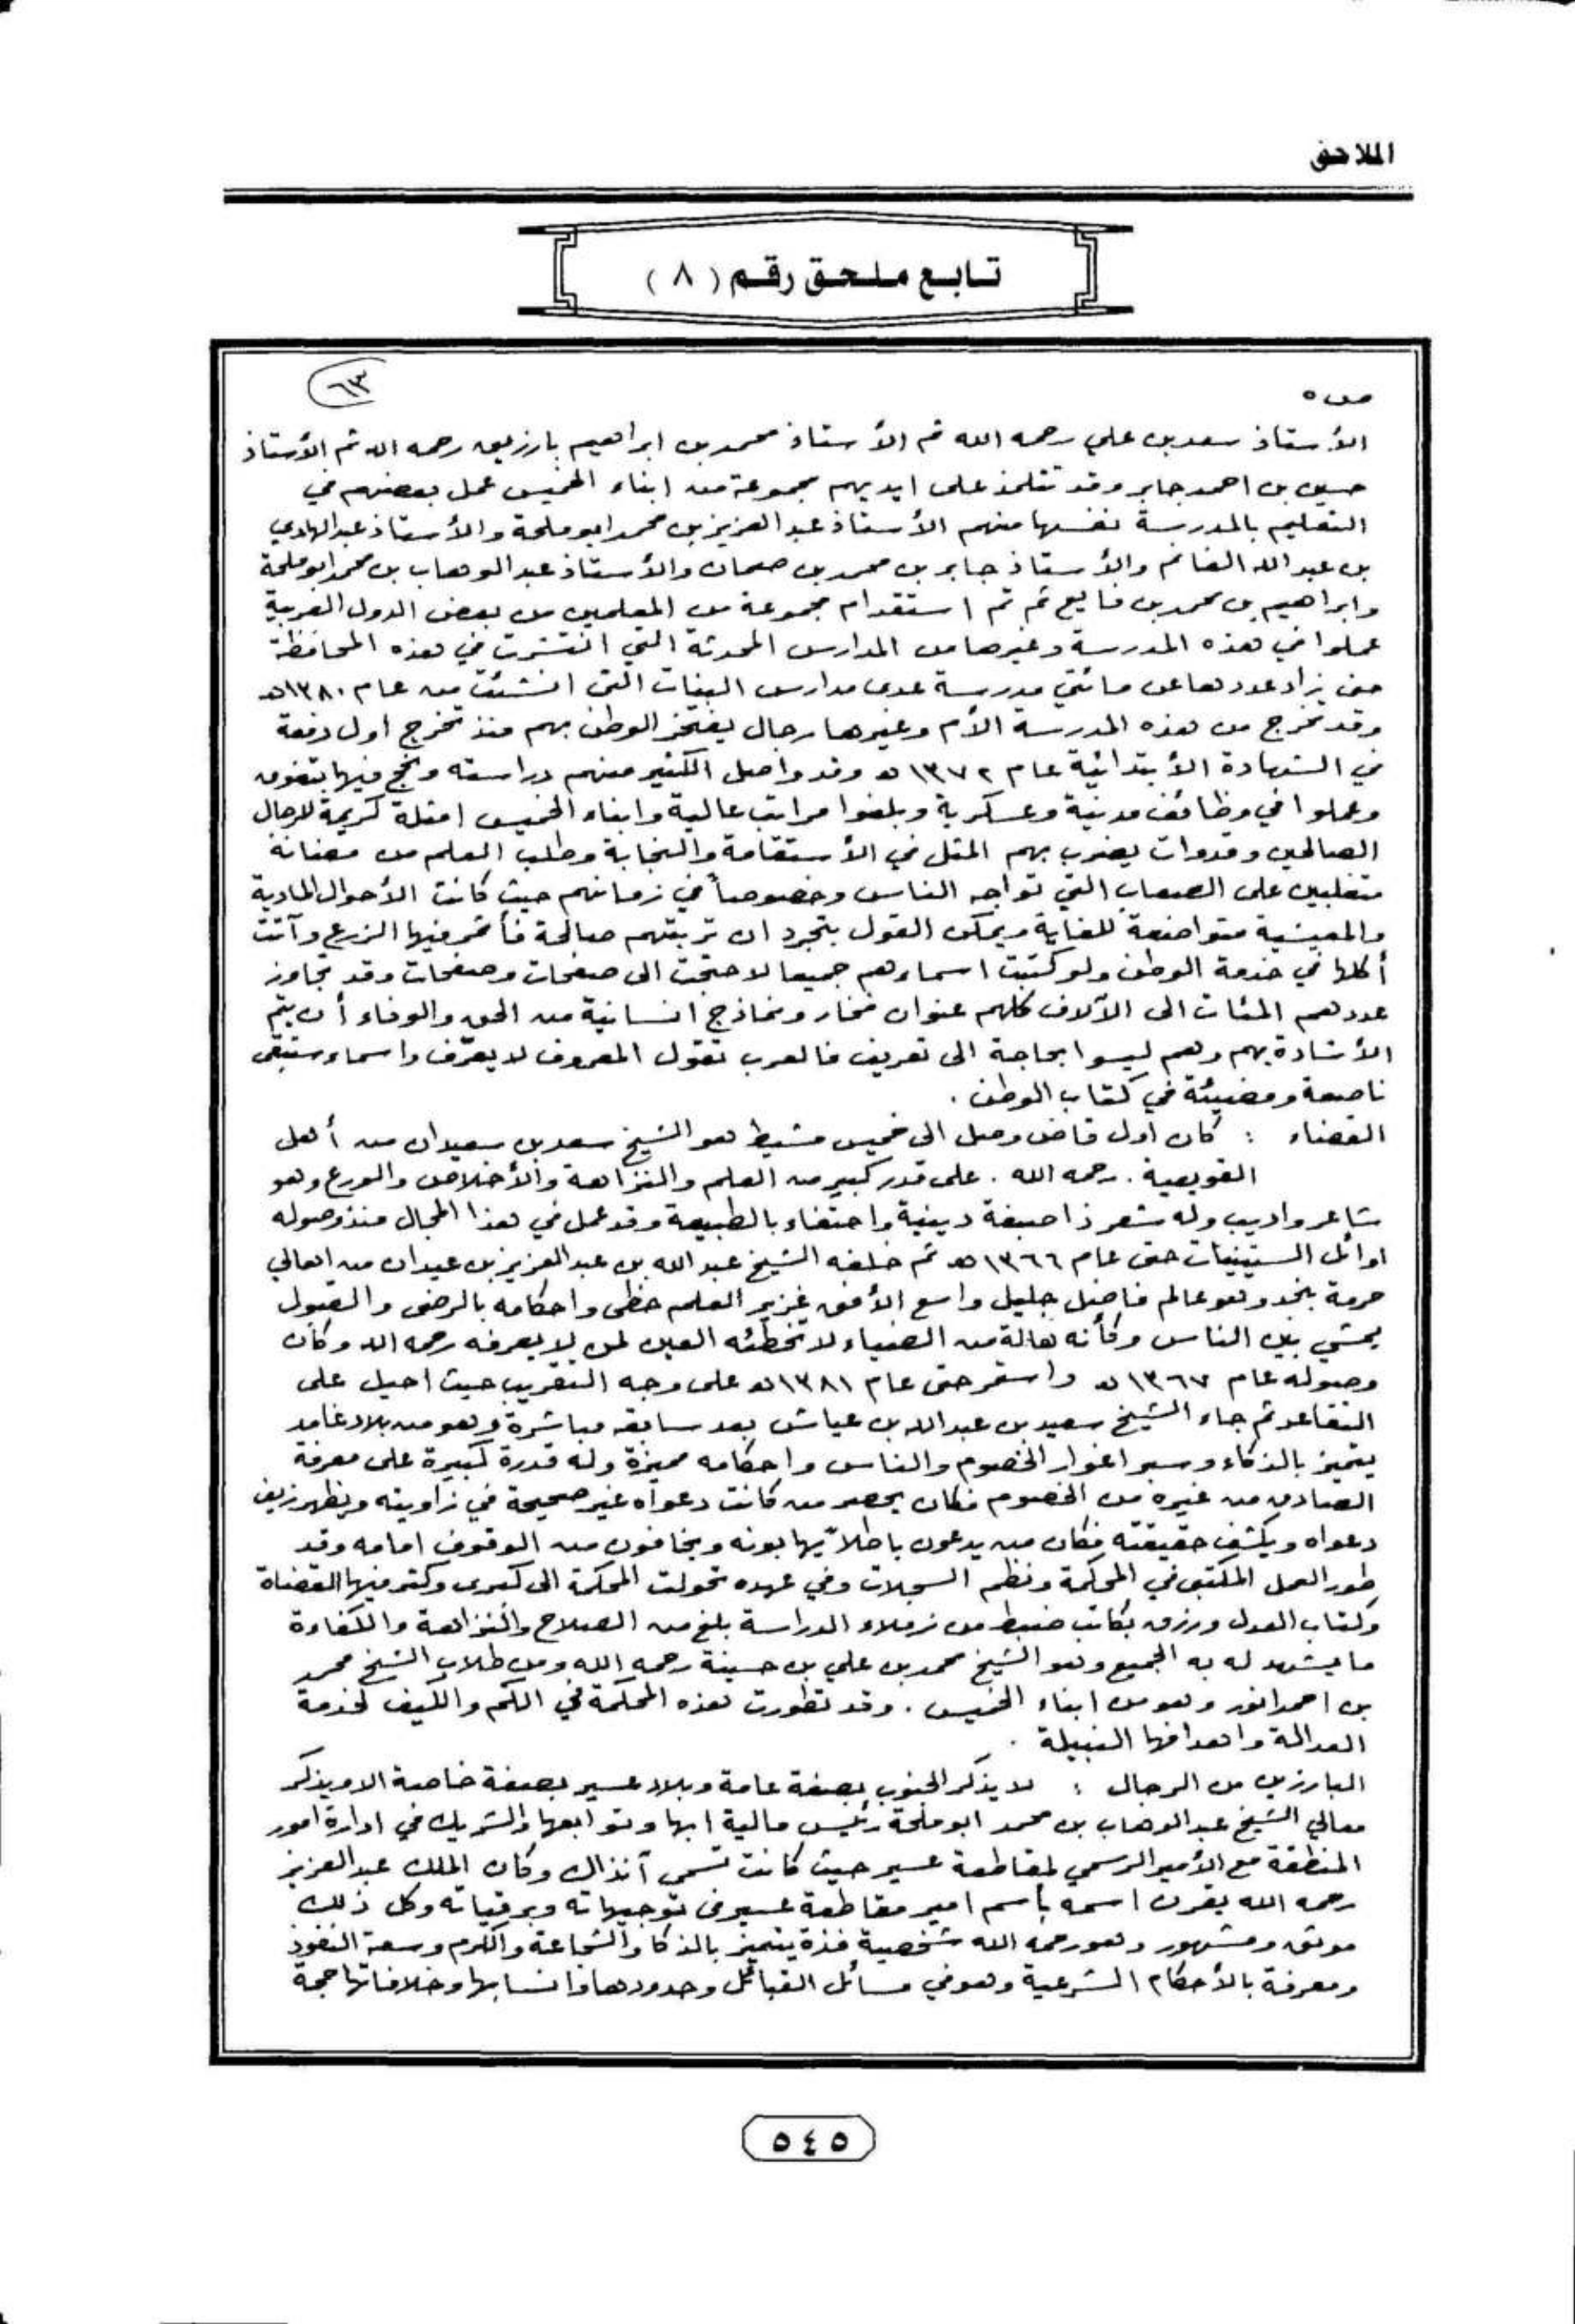 الملاحق
تابع ملحق رقم (٨)
٦٣
ص ٥
الأستاذ سعد بن علي رحمه الله ثم الأستاذ محمد بن ابراهيم بارزيق رحمه الله ثم الأستاذ
حسين بن احمد جابر وقد تتلمذ على ايديهم مجموعة من ابناء الخميس عمل بعضهم في
التعليم بالمدرسة نفسها منهم الأستاذ عبد العزيز بن محمد ابو ملحة والأستاذ عبد الهادي
بن عبد الله الغانم والأستاذ جابر بن محمد بن صمان والأستاذ عبد الوهاب بن محمد ابو ملحة
وابراهيم بن محمد بن فايع ثم تم استقدام مجموعة من المعلمين من بعض الدول العربية
عملوا في هذه المدرسة وغيرها من المدارس المحدثة التي انتشرت في هذه المحافظة
حتى زاد عددها عن مائتي مدرسة عدى مدارس البنات التي انشئت من عام ١٣٨٠هـ
وقد تخرج من هذه المدرسة الأم وغيرها رجال يفتخر الوطن بهم منذ تخرج اول دفعة
في الشهادة الأبتدائية عام ١٣٧٢هـ وقد واصل الكثير منهم دراسته ونجح فيها بتفوق
وعملوا في وظائف مدنية وعسكرية وبلغوا مراتب عالية وابناء الخميس امثلة كريمة للرجال
الصالحين وقدوات يضرب بهم المثل في الأستقامة والنجابة وطلب العلم من مضانة
متغلبين على الصعاب التي تواجه الناس وخصوصاً في زمانهم حيث كانت الأحوال المادية
والمعيشية متواضعة للغاية ويمكن القول بتجرد ان تربتهم صالحة فأثمر فيها الزرع وآتت
أكلها في خدمة الوطن ولو كتبت اسماءهم جميعا لاحتجت الى صفحات وصفحات وقد تجاوز
عددهم المئات الى الآلاف كلهم عنوان فخار ونماذج انسانية من الحق والوفاء أن يتم
الأشادة بهم وهم ليسوا بحاجة الى تعريف فالعرب تقول المعروف لا يعرّف واسماء ستبقى
ناصعة ومضيئة في كتاب الوطن .
القضاء : كان اول قاض وصل الى خميس مشيط هو الشيخ سعد بن سعيدان من أهل
القويعية . رحمه الله . على قدر كبير من العلم والنزاهة والأخلاص والورع وهو
شاعر واديب وله شعر ذا صبغة دينية واحتفاء بالطبيعة وقد عمل في هذا المجال منذ وصوله
اوائل الستينيات حتى عام ١٣٦٦هـ ثم خلفه الشيخ عبد الله بن عبد العزيز بن عيدان من اهالي
حرمة بنجد وهو عالم فاضل جليل واسع الأفق غزير العلم حظى واحكامه بالرضى والقبول
يمشي بين الناس وكأنه هالة من الضياء لا تخطئه العين لمن لا يعرفه رحمه الله وكان
وصوله عام ١٣٦٧هـ واستمر حتى عام ١٣٨١هـ على وجه التقريب حيث احيل على
التقاعد ثم جاء الشيخ سعيد بن عبد الله بن عياش بعد سابقه مباشرة وهو من بلاد غامد
يتميز بالذكاء وسبر اغوار الخصوم والناس واحكامه مميزة وله قدرة كبيرة على معرفة
الصادق من غيره من الخصوم فكان يحصر من كانت دعواه غير صحيحة في زاويته ويظهر زيف
دعواه ويكشف حقيقته فكان من يدعون باطلاً يهابونه ويخافون من الوقوف امامه وقد
طور العمل المكتبي في المحكمة ونظم السجلات وفي عهده تحولت المحكمة الى كبرى وكثر فيها القضاة
وكتاب العدل ورزق بكاتب ضبط من زملاء الدراسة بلغ من الصلاح والنزاهة والكفاءة
ما يشهد له به الجميع وهو الشيخ محمد بن علي بن حسينة رحمه الله ومن طلاب الشيخ محمد
بن احمد انور وهو من ابناء الخميس . وقد تطورت هذه المحكمة في الكم والكيف لخدمة
العدالة واهدافها النبيلة .
البارزين من الرجال : لا يذكر الجنوب بصفة عامة وبلاد عسير بصفة خاصة الا ويذكر
معالي الشيخ عبد الوهاب بن محمد ابو ملحة رئيس مالية ابها وتوابعها والشريك في ادارة امور
المنطقة مع الأمير الرسمي لمقاطعة عسير حيث كانت تسمى آنذاك وكان الملك عبد العزيز
رحمه الله يقرن اسمه بأسم امير مقاطعة عسير في توجيهاته وبرقياته وكل ذلك
موثق ومشهور وهو رحمه الله شخصية فذة يتميز بالذكا والشجاعة والكرم وسعة النفوذ
ومعرفة بالأحكام الشرعية وهو في مسائل القبائل وحدودها وانسابها وخلافاتها حجة
٥٤٥